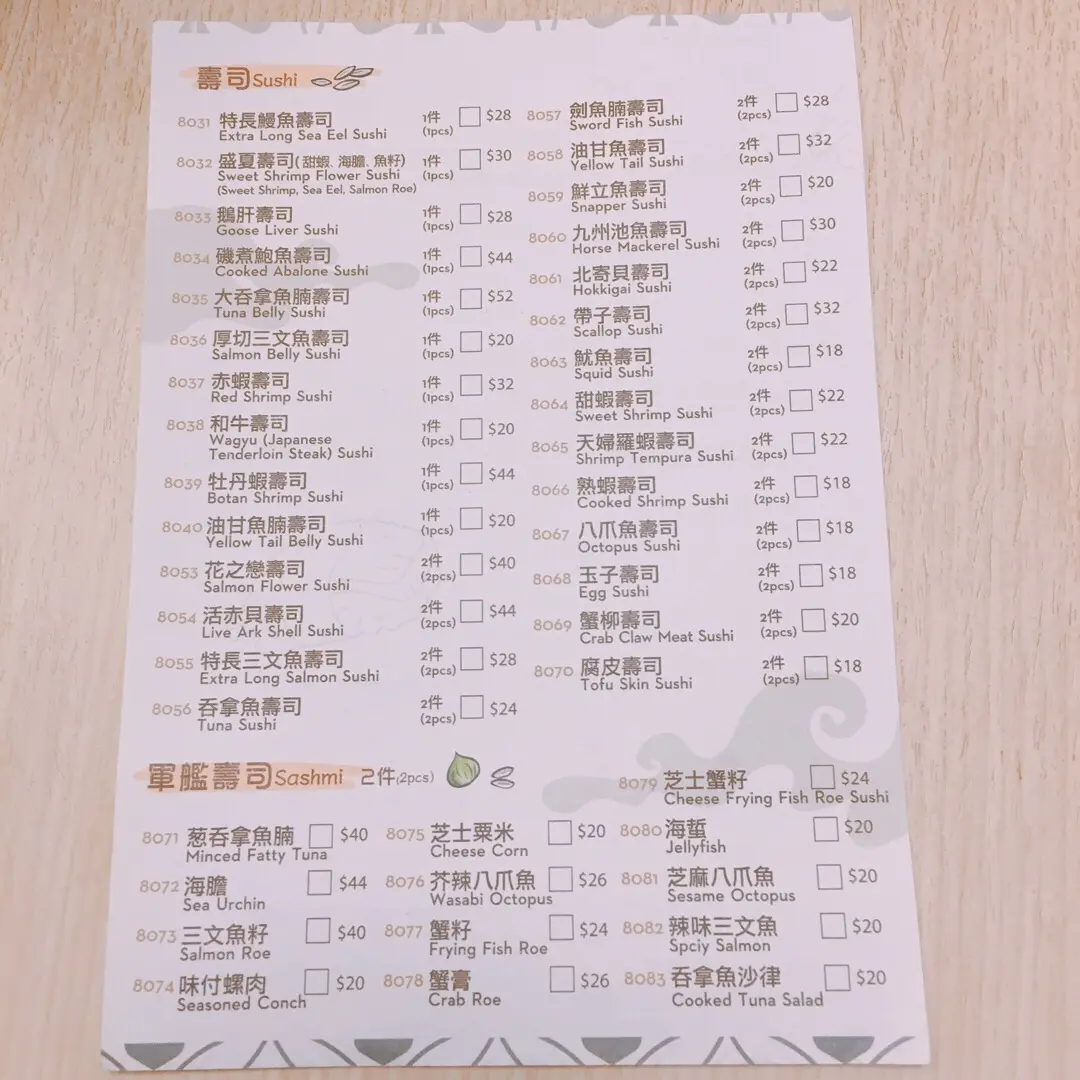 壽司Sushi
8031 特長鰻魚壽司 1件 $28
Extra Long Sea Eel Sushi (1pcs)
8032 盛夏壽司(甜蝦、海膽、魚籽) 1件 $30
Sweet Shrimp Flower Sushi (1pcs)
(Sweet Shrimp, Sea Eel, Salmon Roe)
8033 鵝肝壽司 1件 $28
Goose Liver Sushi (1pcs)
8034 磯煮鮑魚壽司 1件 $44
Cooked Abalone Sushi (1pcs)
8035 大吞拿魚腩壽司 1件 $52
Tuna Belly Sushi (1pcs)
8036 厚切三文魚壽司 1件 $20
Salmon Belly Sushi (1pcs)
8037 赤蝦壽司 1件 $32
Red Shrimp Sushi (1pcs)
8038 和牛壽司 1件 $20
Wagyu (Japanese (1pcs)
Tenderloin Steak) Sushi
8039 牡丹蝦壽司 1件 $44
Botan Shrimp Sushi (1pcs)
8040 油甘魚腩壽司 1件 $20
Yellow Tail Belly Sushi (1pcs)
8053 花之戀壽司 2件 $40
Salmon Flower Sushi (2pcs)
8054 活赤貝壽司 2件 $44
Live Ark Shell Sushi (2pcs)
8055 特長三文魚壽司 2件 $28
Extra Long Salmon Sushi (2pcs)
8056 吞拿魚壽司 2件 $24
Tuna Sushi (2pcs)
8057 劍魚腩壽司 2件 $28
Sword Fish Sushi (2pcs)
8058 油甘魚壽司 2件 $32
Yellow Tail Sushi (2pcs)
8059 鮮立魚壽司 2件 $20
Snapper Sushi (2pcs)
8060 九州池魚壽司 2件 $30
Horse Mackerel Sushi (2pcs)
8061 北寄貝壽司 2件 $22
Hokkigai Sushi (2pcs)
8062 帶子壽司 2件 $32
Scallop Sushi (2pcs)
8063 魷魚壽司 2件 $18
Squid Sushi (2pcs)
8064 甜蝦壽司 2件 $22
Sweet Shrimp Sushi (2pcs)
8065 天婦羅蝦壽司 2件 $22
Shrimp Tempura Sushi (2pcs)
8066 熟蝦壽司 2件 $18
Cooked Shrimp Sushi (2pcs)
8067 八爪魚壽司 2件 $18
Octopus Sushi (2pcs)
8068 玉子壽司 2件 $18
Egg Sushi (2pcs)
8069 蟹柳壽司 2件 $20
Crab Claw Meat Sushi (2pcs)
8070 腐皮壽司 2件 $18
Tofu Skin Sushi (2pcs)
軍艦壽司Sashmi 2件(2pcs)
8071 葱吞拿魚腩 $40
Minced Fatty Tuna
8072 海膽 $44
Sea Urchin
8073 三文魚籽 $40
Salmon Roe
8074 味付螺肉 $20
Seasoned Conch
8075 芝士粟米 $20
Cheese Corn
8076 芥辣八爪魚 $26
Wasabi Octopus
8077 蟹籽 $24
Frying Fish Roe
8078 蟹膏 $26
Crab Roe
8079 芝士蟹籽 $24
Cheese Frying Fish Roe Sushi
8080 海蜇 $20
Jellyfish
8081 芝麻八爪魚 $20
Sesame Octopus
8082 辣味三文魚 $20
Spciy Salmon
8083 吞拿魚沙律 $20
Cooked Tuna Salad